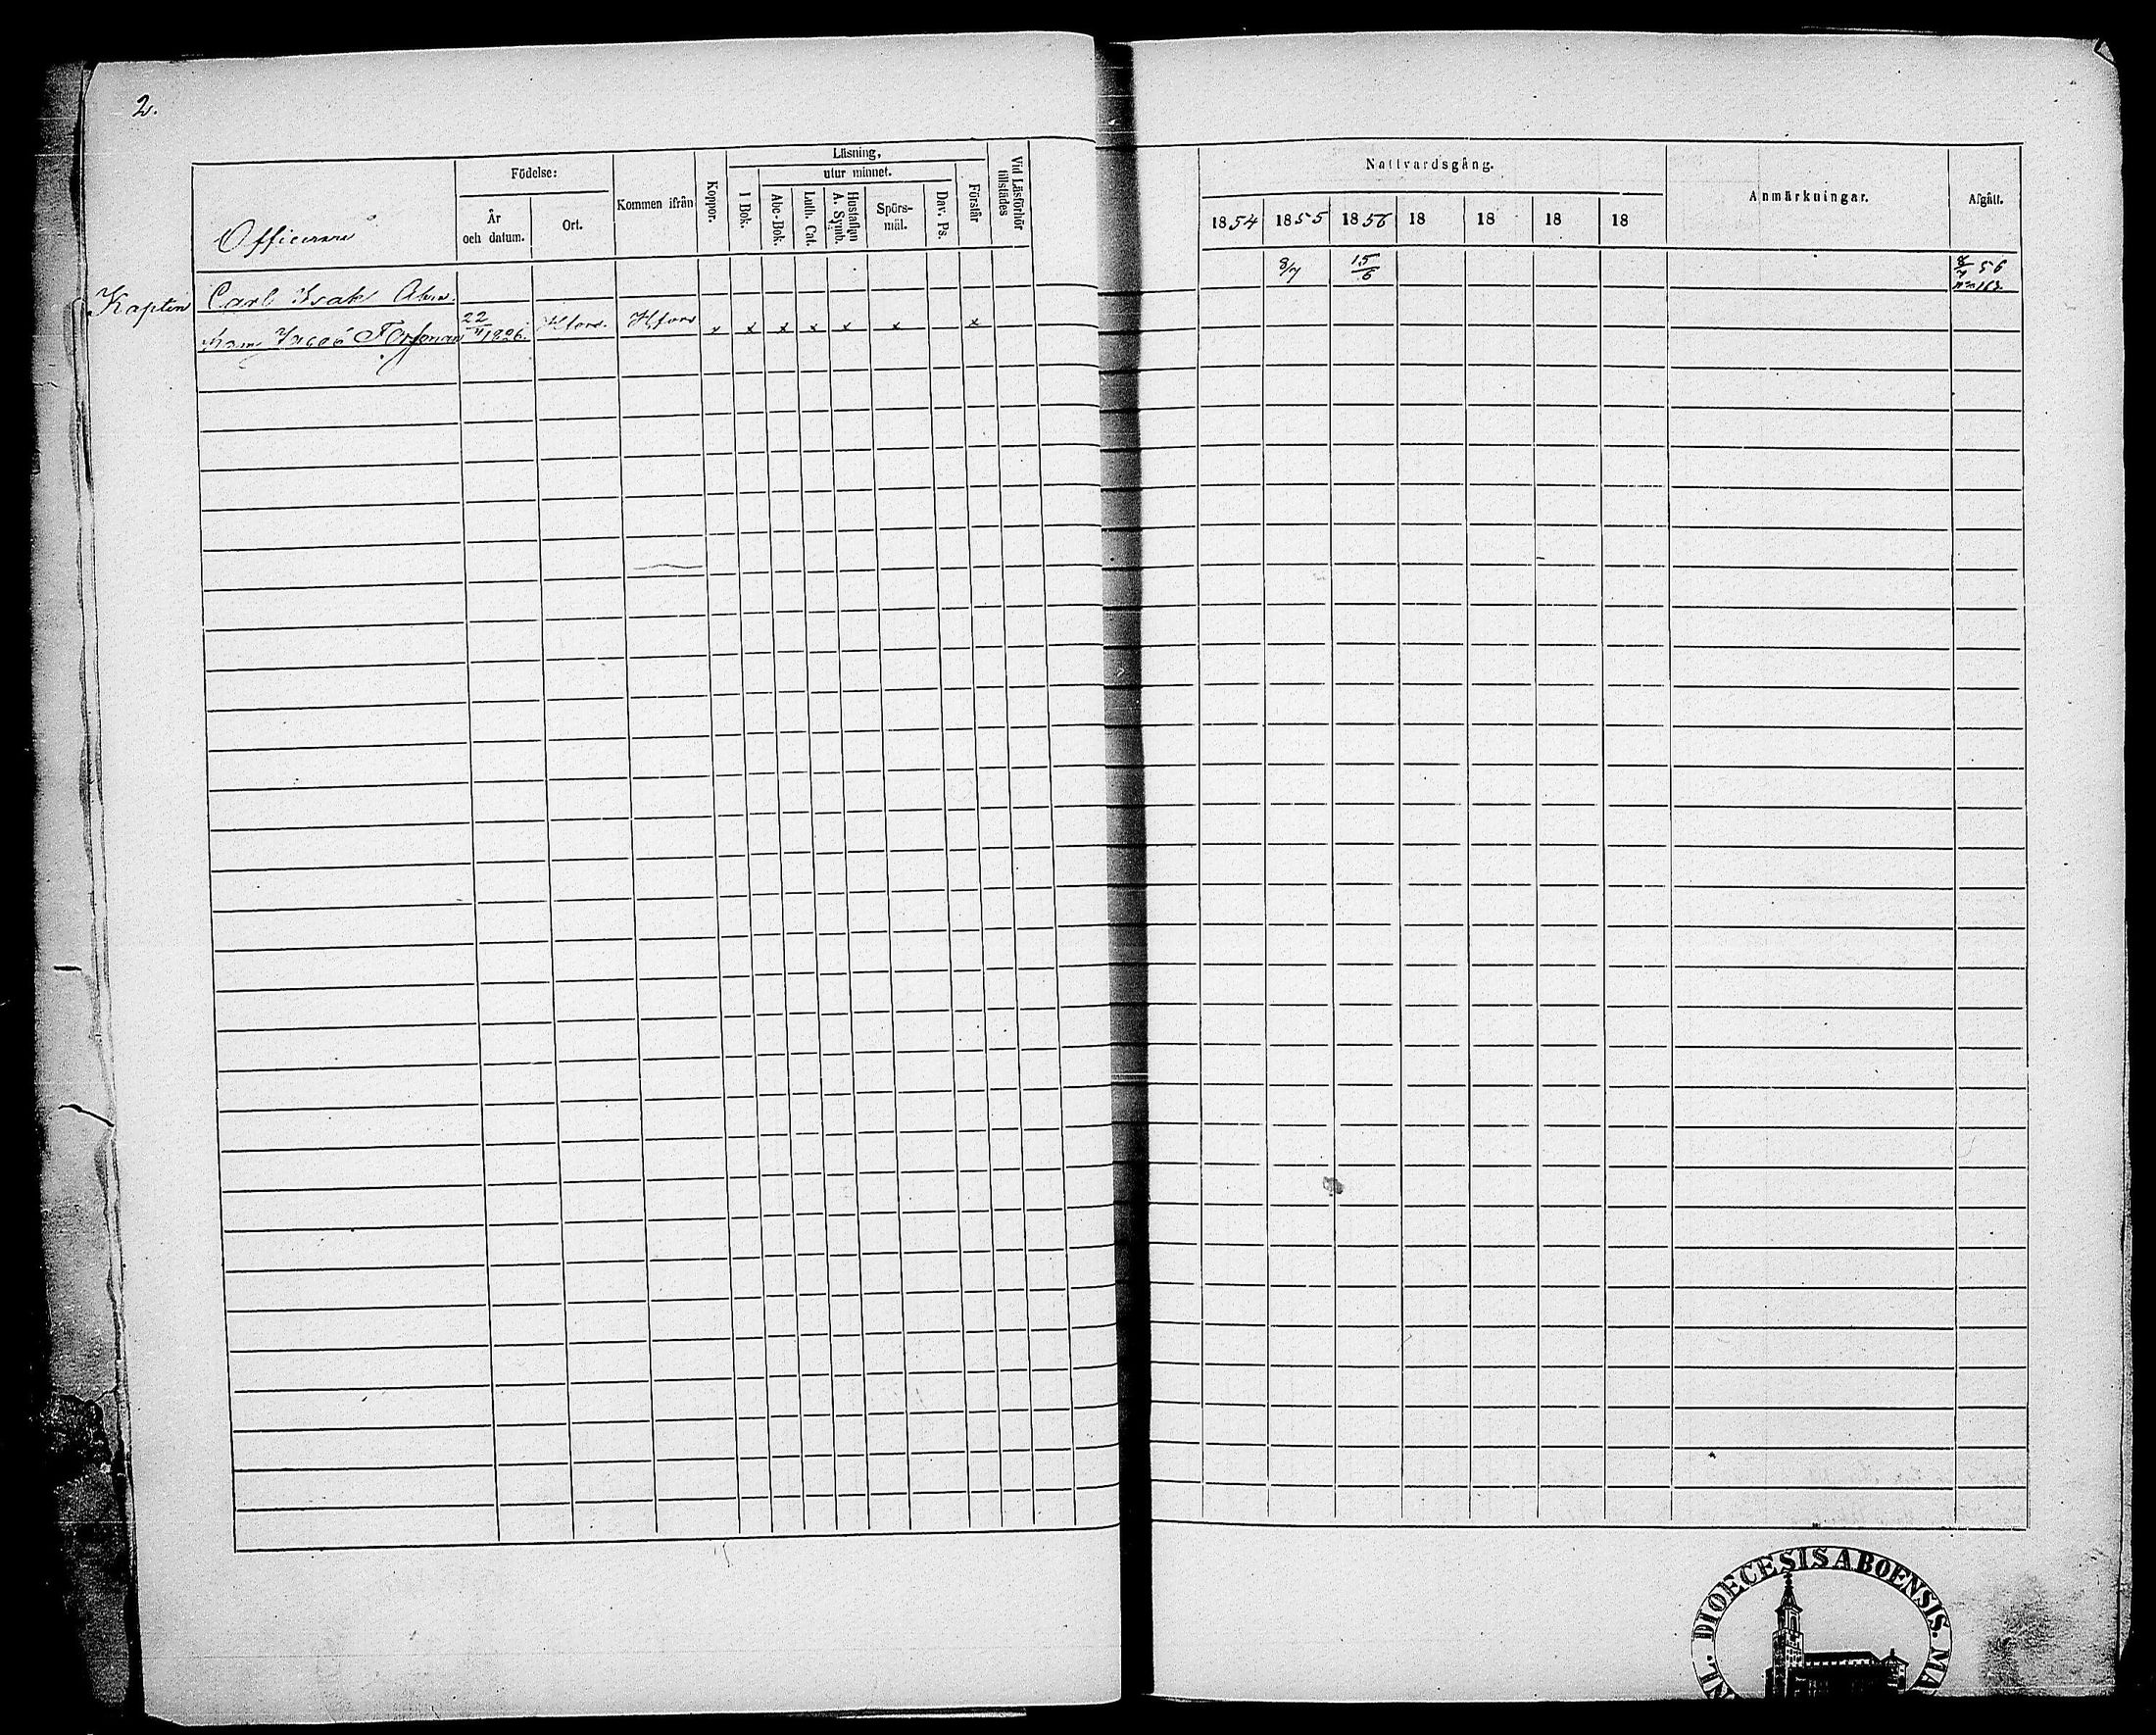 2.
Läsning,
Födelse:
utur minnet.
Officerare
År och datum.
Ort.
Kommen ifrån
Koppor.
I Bok.
Abc-Bok.
Luth. Cat.
Hustaflan A. Symb.
Spörs-mål.
Dav. Ps.
Förstår
Vid Läsförhör tillstädes
Kapten Carl Isak
Jacob 22/11 1826. Hfors. Hfors x x x x x x x
Nattvardsgång.
Anmärkningar.
Afgått.
1854 1855 1856 18 18 18 18
8/7 15/6 8/7 56
DIOECESIS ABOENSIS. MA